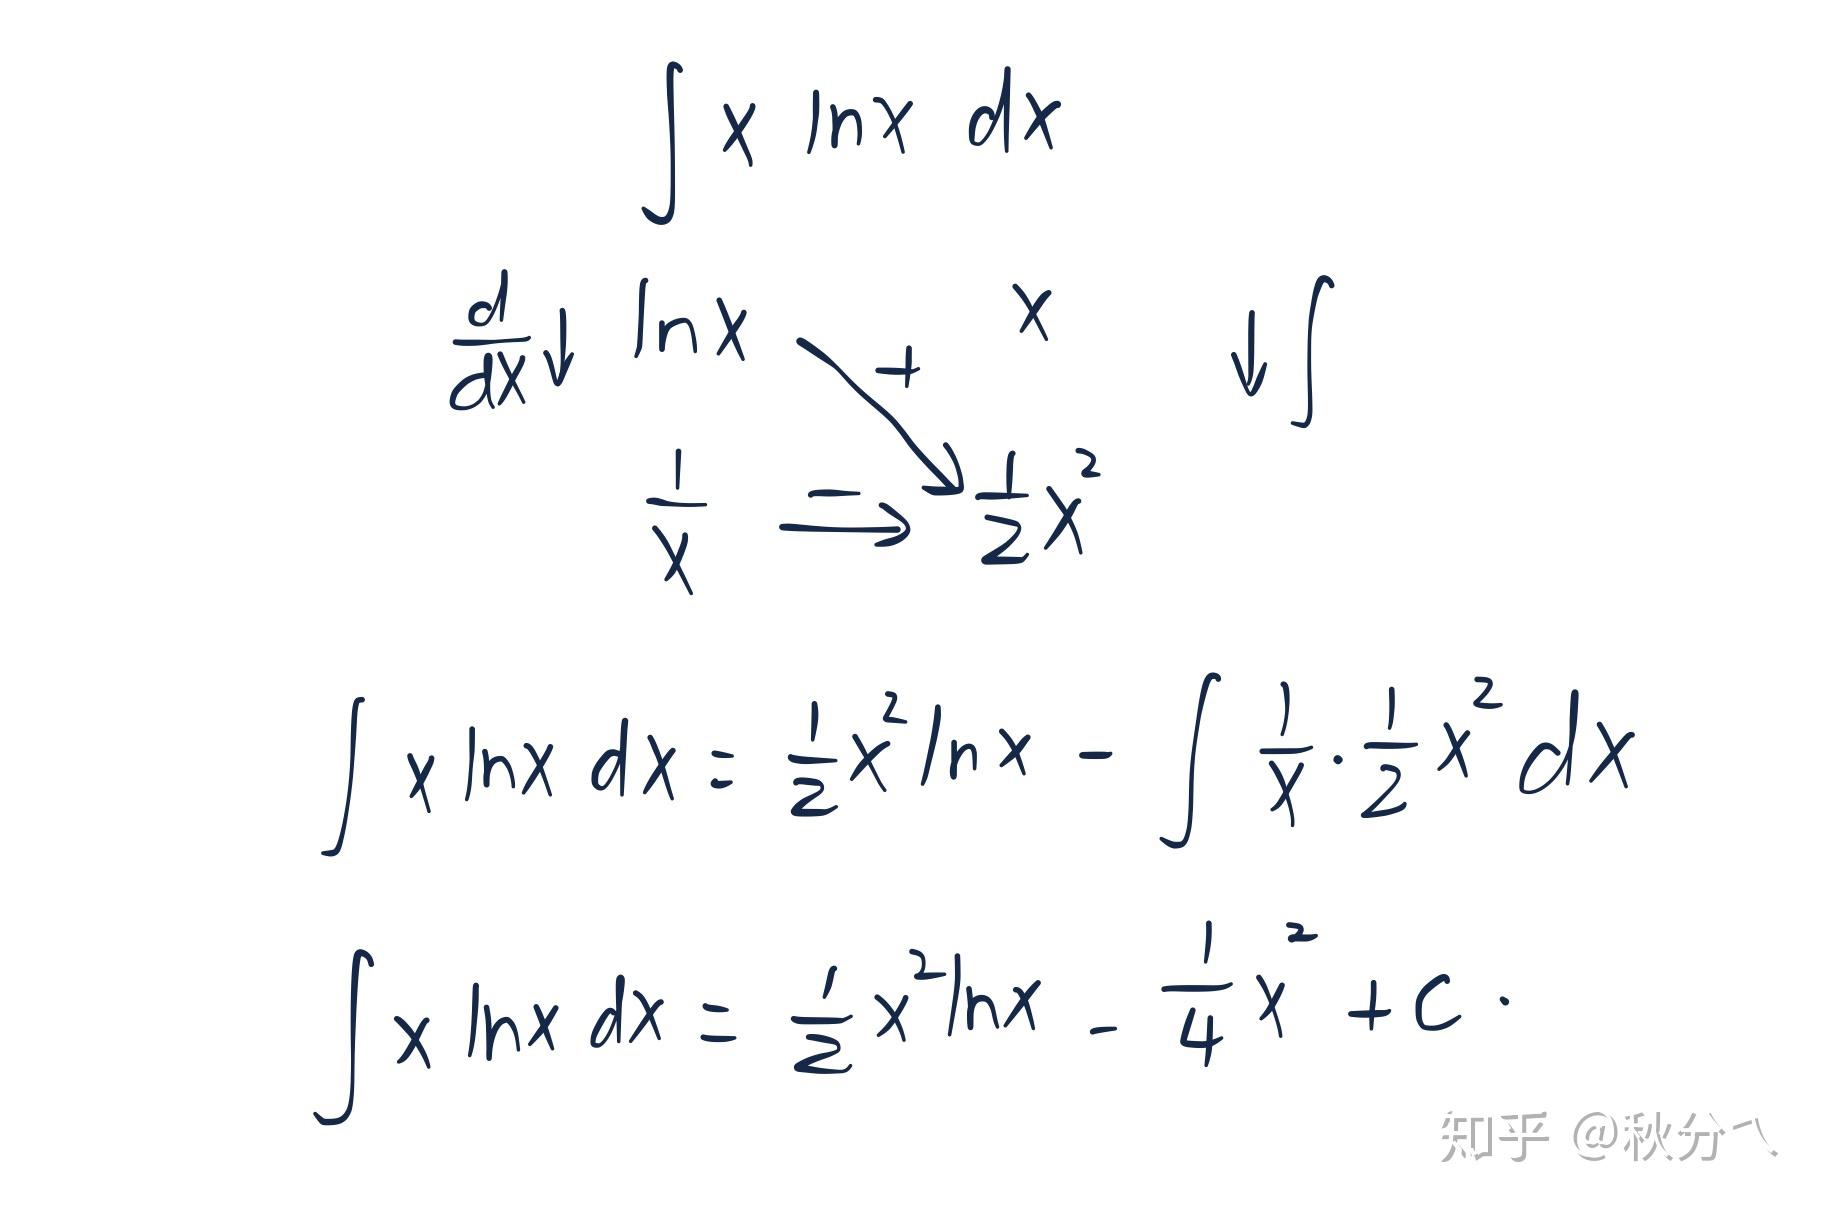 ∫ x lnx dx
d/dx ↓ lnx + x ↓ ∫
1/x − ⟶ 1/2 x²
∫ x lnx dx = 1/2 x² lnx − ∫ 1/x · 1/2 x² dx
∫ x lnx dx = 1/2 x² lnx − 1/4 x² + C .
知乎 @秋分㇏